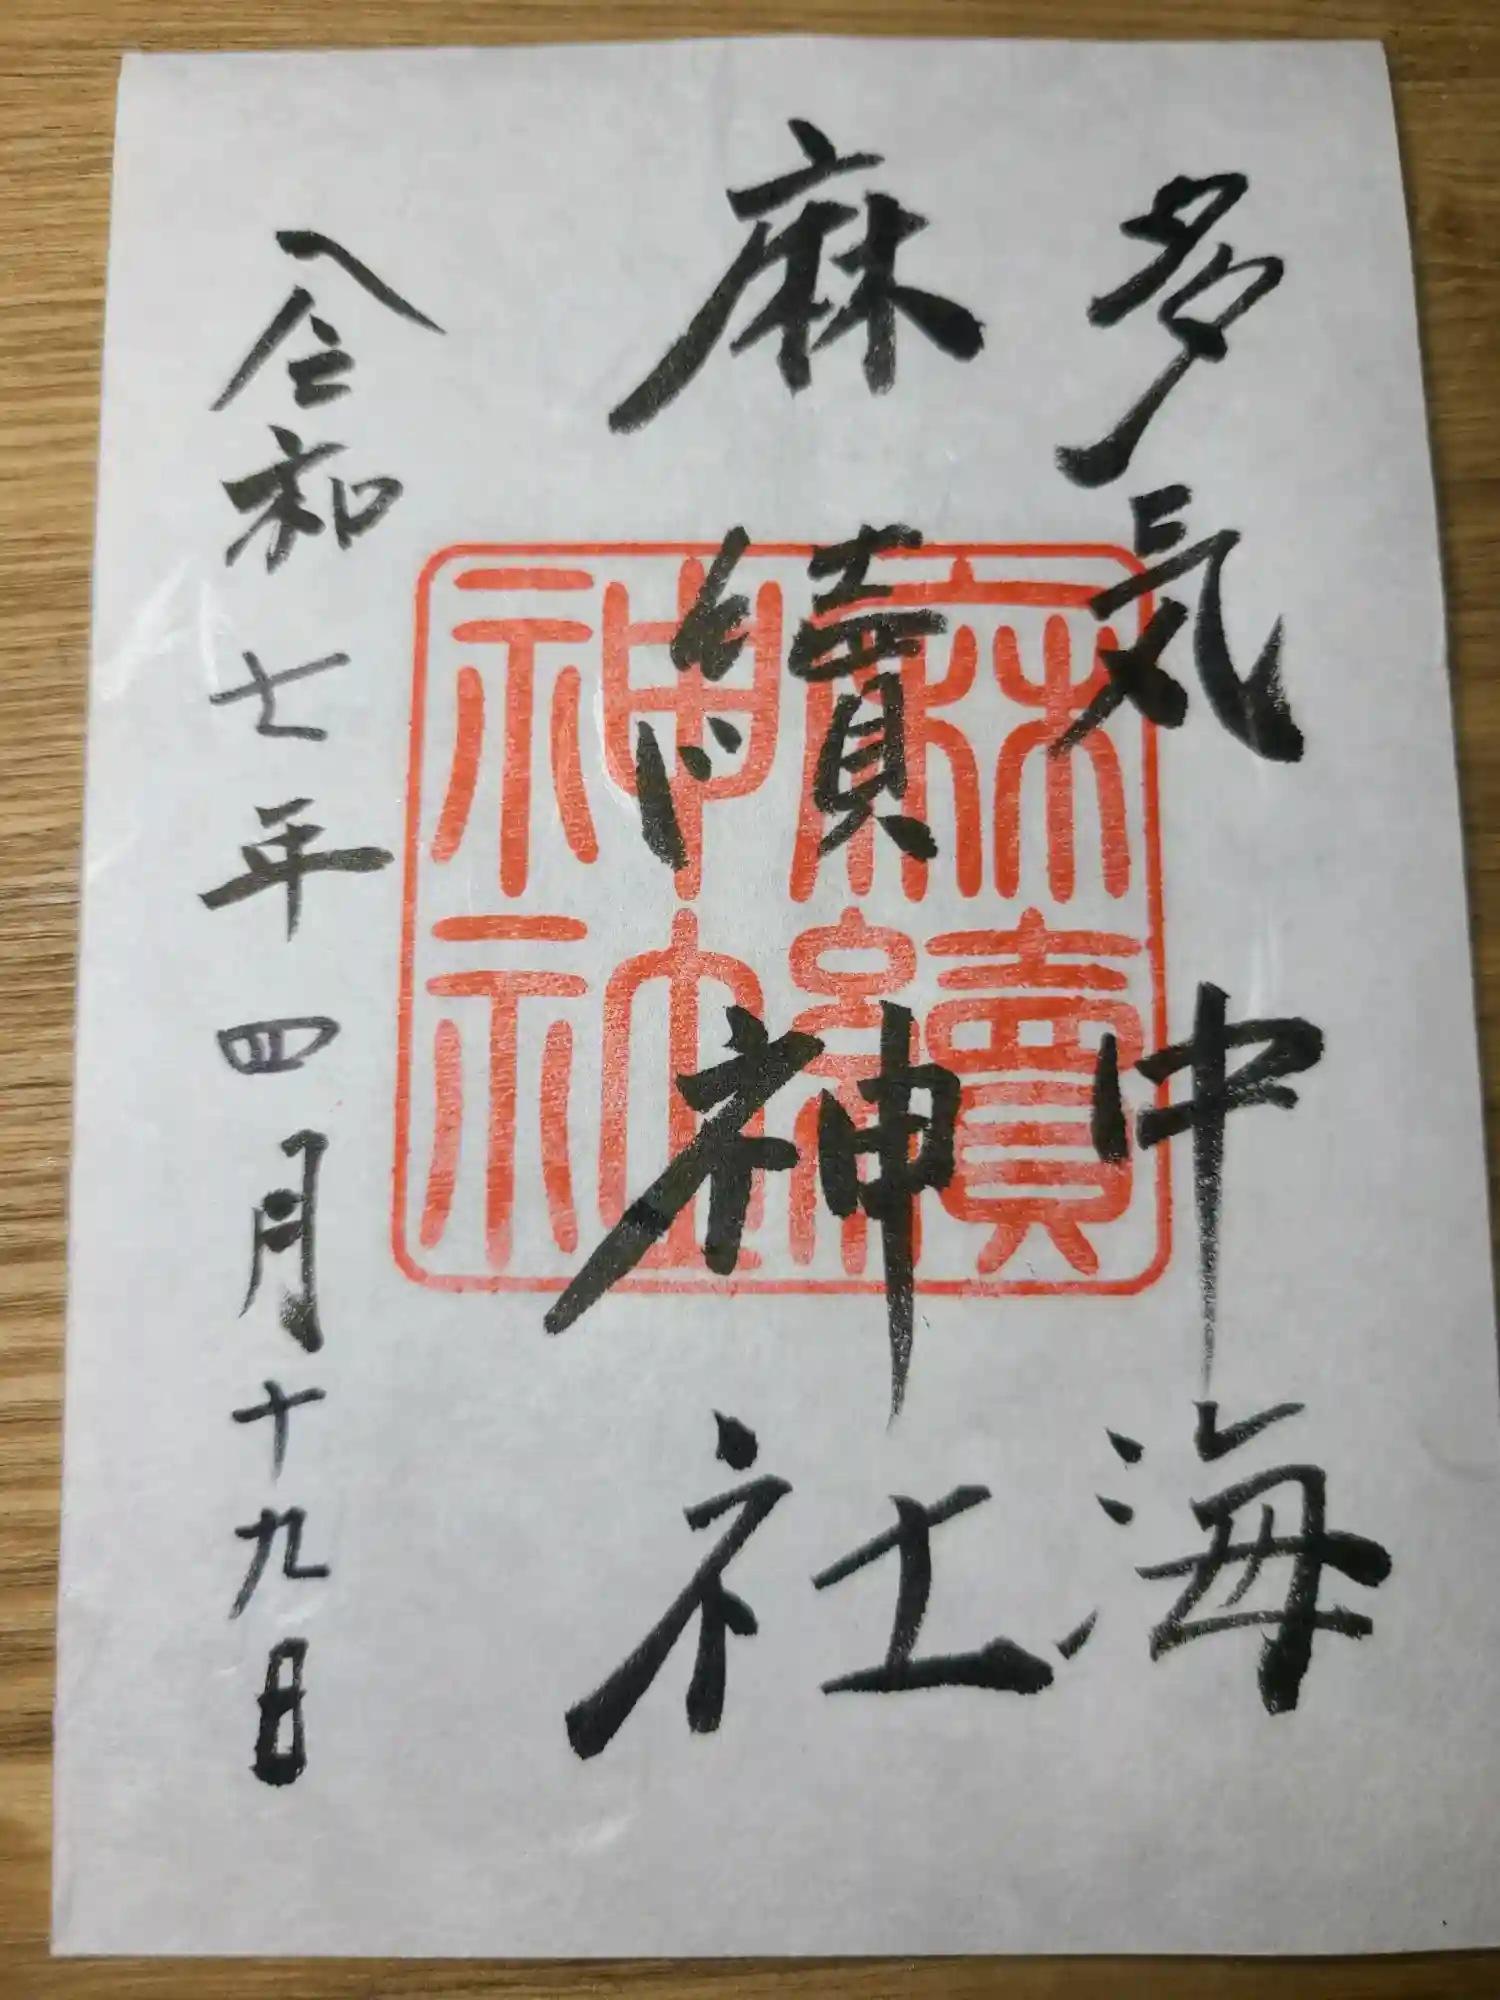 多気中海
麻續神社
麻續
神社
令和七年四月十九日